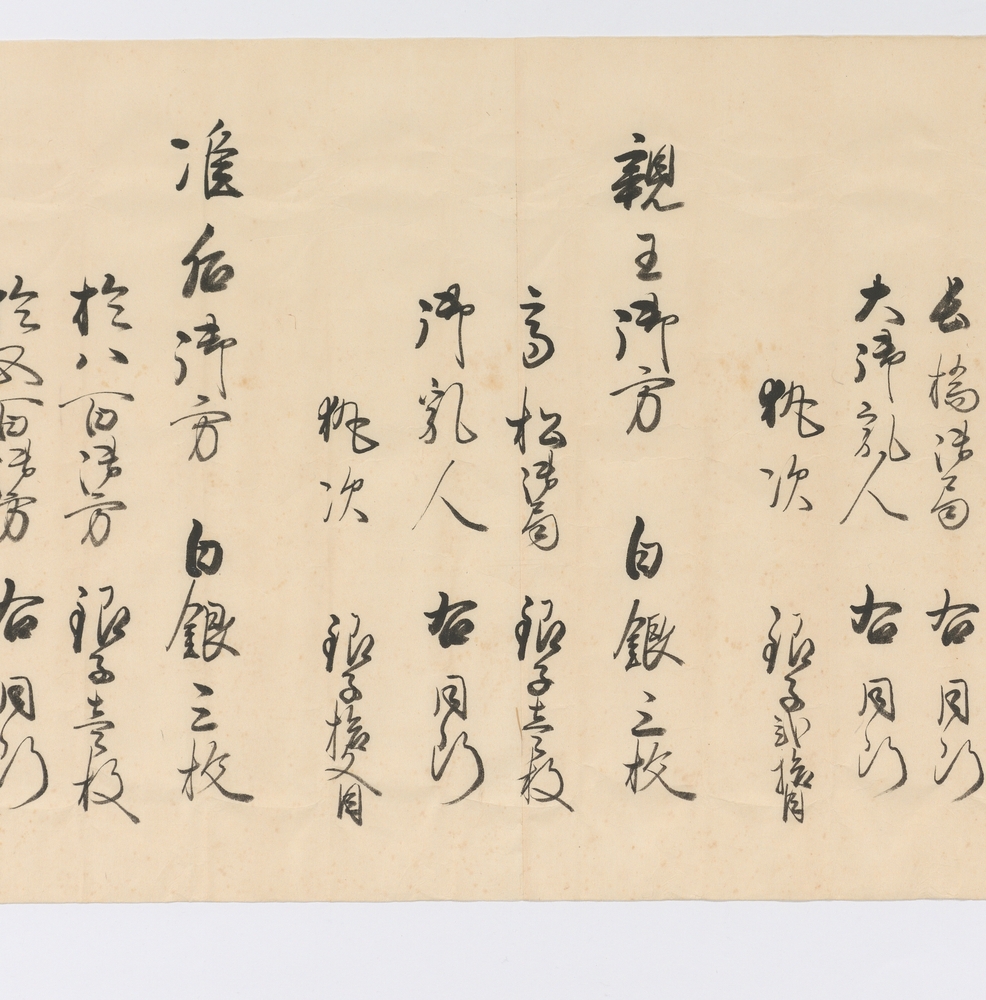 長橋御局 右同断
大御乳人 右同断
執次 銀子弐拾目
親王御方 白銀三枚
高松御局 銀子壱枚
御乳人 右同断
執次 銀子拾文目
准后御方 白銀三枚
於八百御方 銀子壱枚
於五百御方 右同断